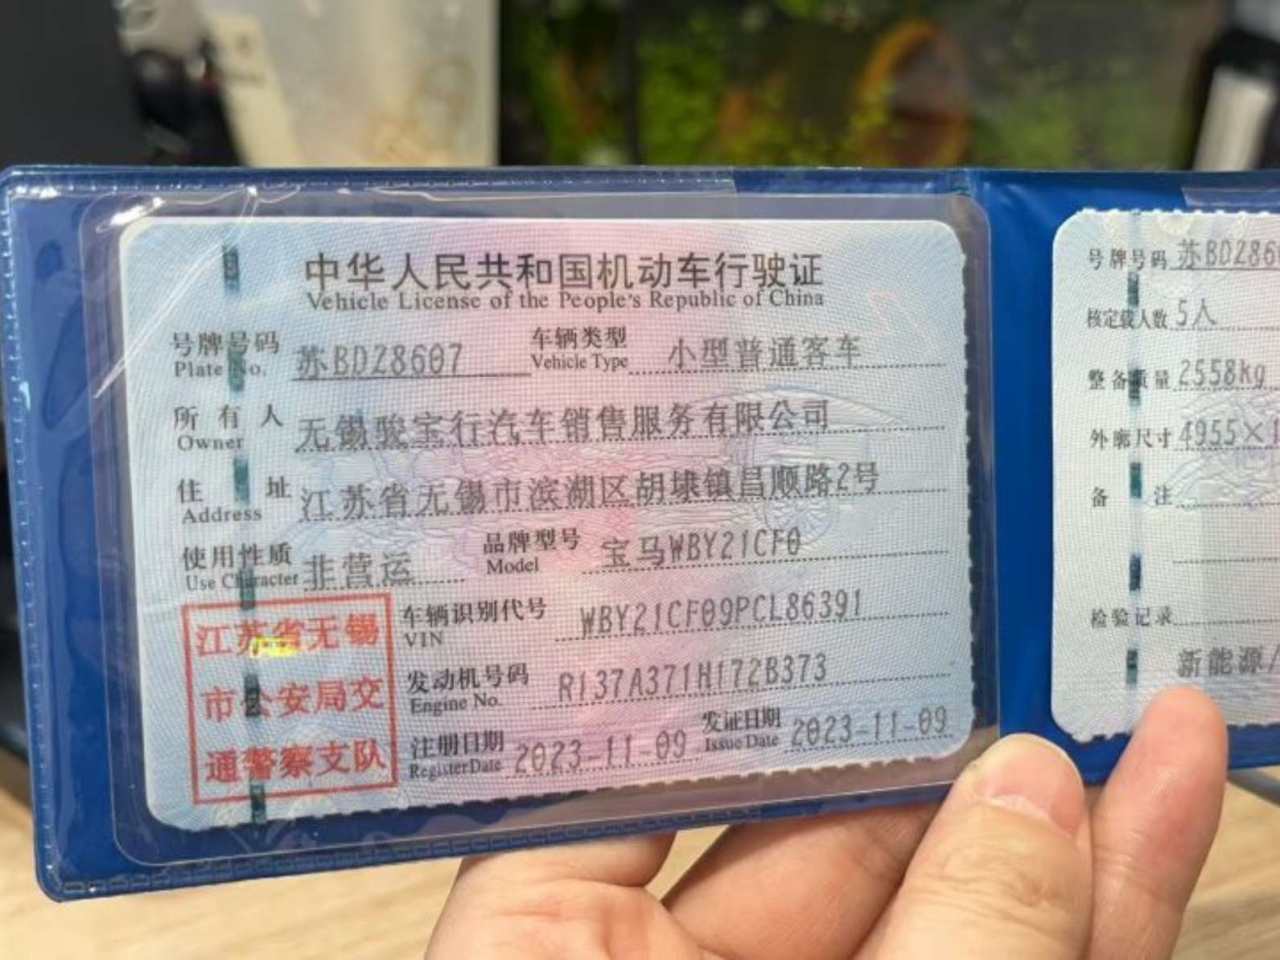 中华人民共和国机动车行驶证
Vehicle License of the People's Republic of China
号牌号码 苏BDZ8607 车辆类型 小型普通客车
Plate No. Vehicle Type
所有人 无锡骏宝行汽车销售服务有限公司
Owner
住址 江苏省无锡市滨湖区胡埭镇昌顺路2号
Address
使用性质 非营运 品牌型号 宝马WBY21CF0
Use Character Model
车辆识别代号 WBY21CF09PCL86391
VIN
发动机号码 R137A371H172B373
Engine No.
注册日期 2023-11-09 发证日期 2023-11-09
Register Date Issue Date
江苏省无锡
市公安局交
通警察支队
号牌号码 苏BDZ860
核定载人数 5人
整备质量 2558kg
外廓尺寸 4955×1
备注
检验记录
新能源/